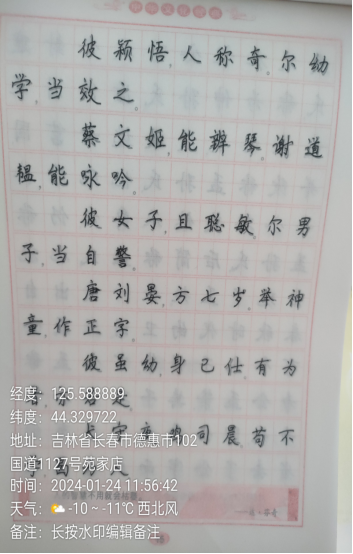 彼颖悟,人称奇,尔幼
学,当效之。
蔡文姬,能辨琴,谢道
韫,能咏吟。
彼女子,且聪敏,尔男
子,当自警。
唐刘晏,方七岁,举神
童,作正字。
彼虽幼,身己仕,有为
司晨,苟不
经度:125.588889
纬度:44.329722
地址:吉林省长春市德惠市102
国道1127号苑家店
时间:2024-01-24 11:56:42
天气:-10 ~ -11℃ 西北风
备注:长按水印编辑备注